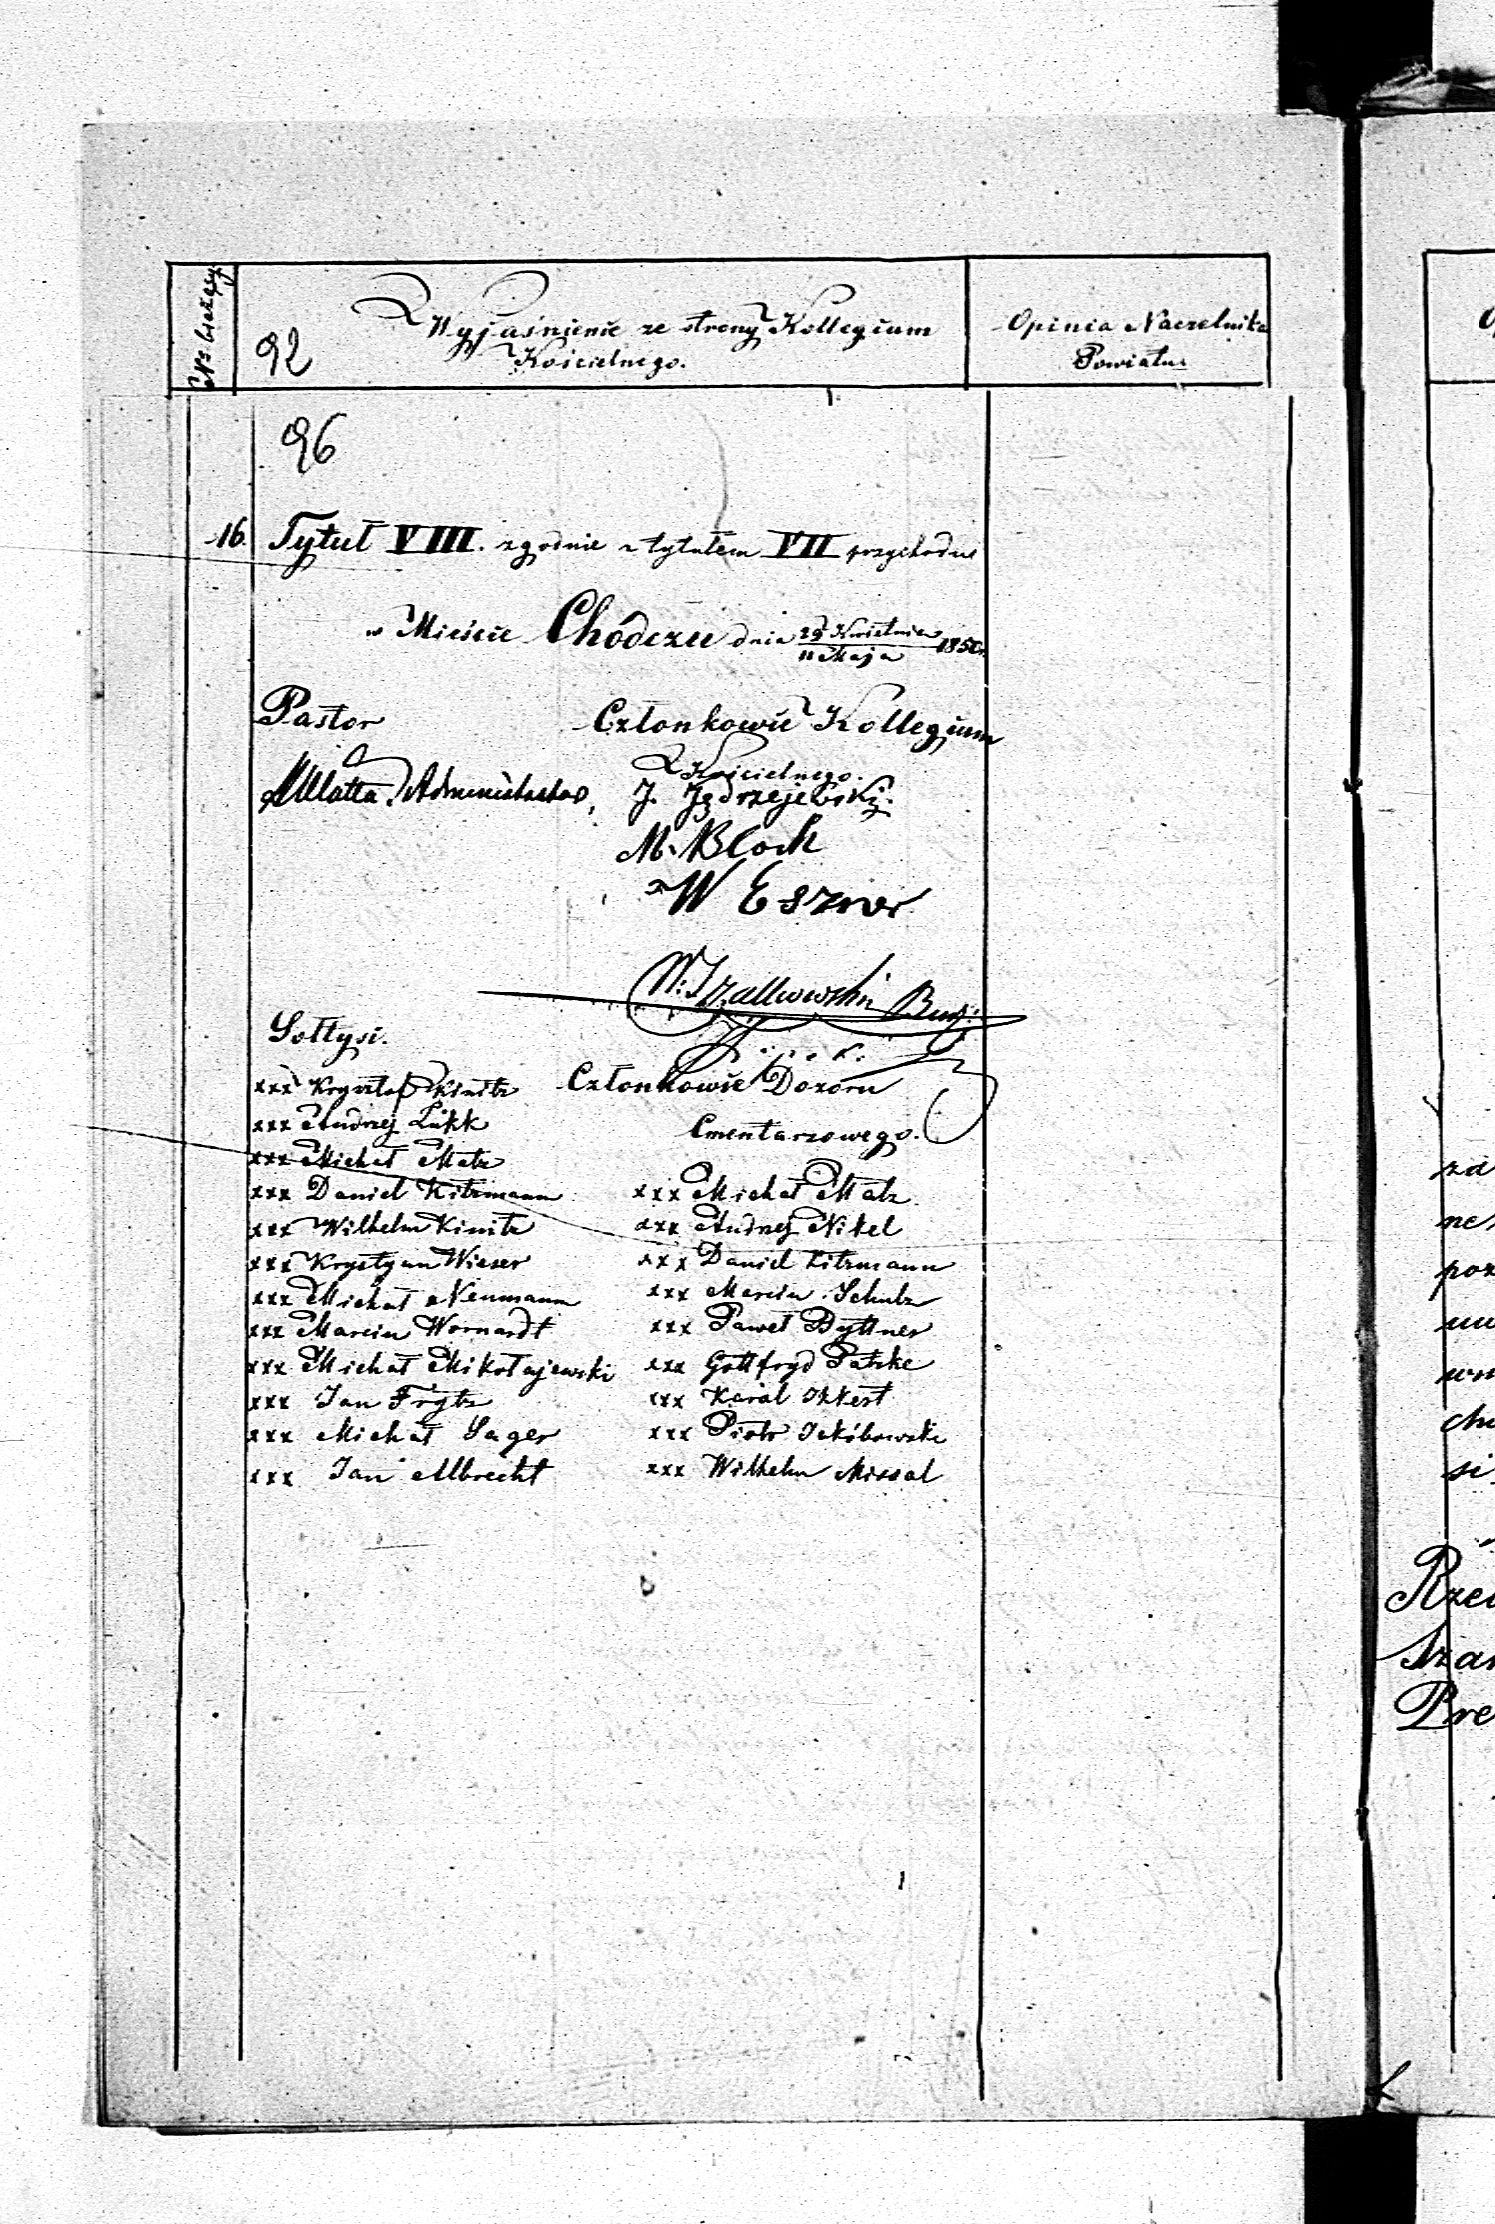 № bieżący
92
Wyjaśnienie ze strony Kollegium
Kościelnego.
Opinia Naczelnika
Powiatu
96
16. Tytuł VIII. zgodnie z tytułem VII przychodu
w Mieście Chódczu dnia 29 Kwietnia
11 Maja 185
Pastor
Członkowie Kollegium
Kościelnego.
Administrator,
J. Jędrzejewski.
M. Block
W
Burm:
Sołtysi.
xxx Krysztof Kinitz
xxx Andrzej Lükk
xxx Michał Matz
xxx Daniel Kitzmann
xxx Wilhelm Kinitz
xxx Krystyan Wieser
xxx Michał Neumann
xxx Marcin Wornardt
xxx Michał Mikołajewski
xxx Jan Frytz
xxx Michał Sager
xxx Jan Albrecht
Członkowie Dozoru
Cmentarzowego.
xxx Michał Matz
xxx Andrzej Nikel
xxx Daniel Kitzmann
xxx Marcin Schulz
xxx Paweł Byttner
xxx Gottfryd Patzke
xxx Karol Ikkert
xxx Piotr Jakóbowski
xxx Wilhelm Missal